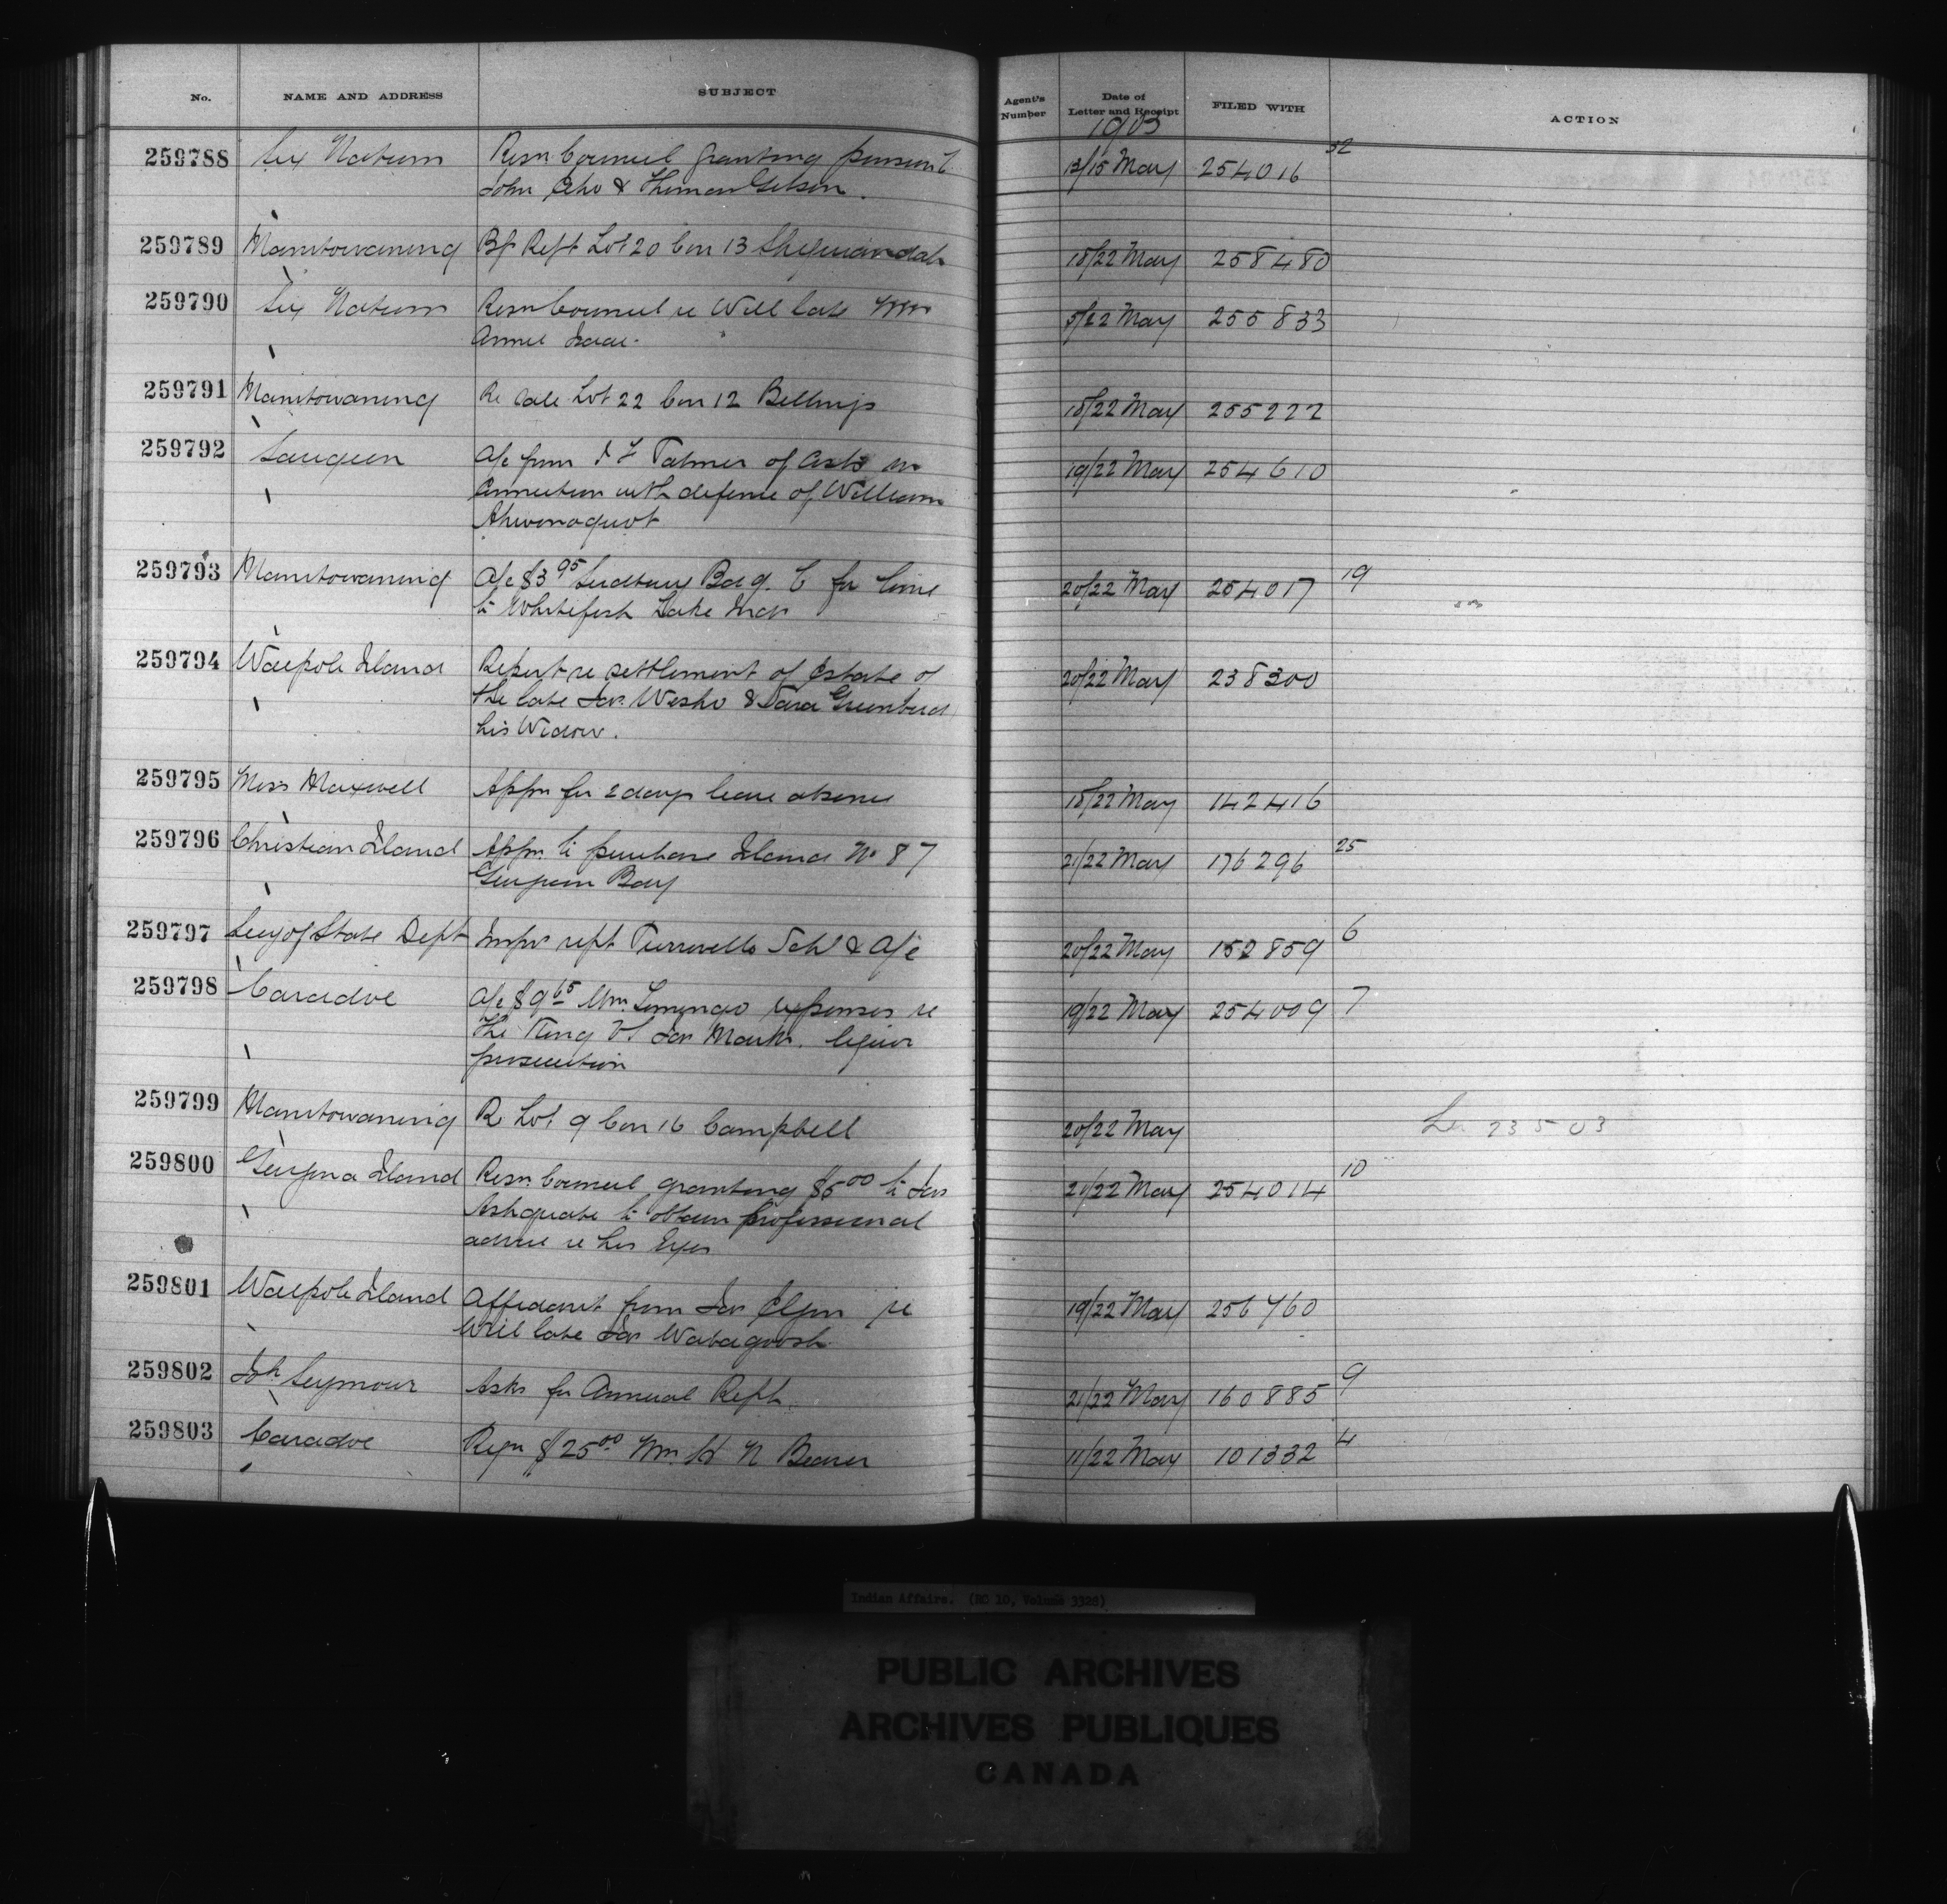 No. NAME AND ADDRESS SUBJECT Agent's Number Date of Letter and Receipt FILED WITH ACTION
1903
259788 Six Nations Resn Council granting pension to 13/15 May 254016 32
John Echo & Thomas Gibson.
259789 Manitowaning Bf Rept Lot 20 Con 13 Sheguiandah 18/22 May 258480
259790 Six Nations Resn Council re Will late Mrs 5/22 May 255833
Annie Isaac.
259791 Manitowaning Re Sale Lot 22 Con 12 Billings 18/22 May 255222
259792 Saugeen A/c from Palmer of costs in 19/22 May 254610
Connection with defense of William
Ahwonoquot
259793 Manitowaning A/c $3 95 Sudbury Bdg. C for lime 20/22 May 254017 19
to Whitefish Lake Inds
259794 Walpole Island Report re settlement of Estate of 20/22 May 238300
the late Jas. Wesho & Sara Greenbird
his Widow.
259795 Miss Maxwell Appn for 2 days leave absence 18/22 May 142416
259796 Christian Island Appn. to purchase Island No 87 21/22 May 176296 25
Georgian Bay
259797 Secy of State Dept Inspr rept Schl & A/c 20/22 May 152859 6
259798 Caradoc A/c $9 65 Wm. expenses re 19/22 May 254009 7
The King Vs Jas Mark. liquor
prosecution
259799 Manitowaning Re Lot 9 Con 16 Campbell 20/22 May 23 5 03
259800 Georgina Island Resn. Council granting $5 00 to Jas 21/22 May 254014 10
Ashquabe to obtain professional
advice re his Eyes
259801 Walpole Island Affidavit from Jas Elgin re 19/22 May 256760
Will late Jas Wabagoosh
259802 Seymour Asks for Annual Rept. 21/22 May 160885 9
259803 Caradoc Reqn $25 00 Wm. H N Beaver 11/22 May 101332 4
Indian Affairs. (RG 10, Volume 3328)
PUBLIC ARCHIVES
ARCHIVES PUBLIQUES
CANADA